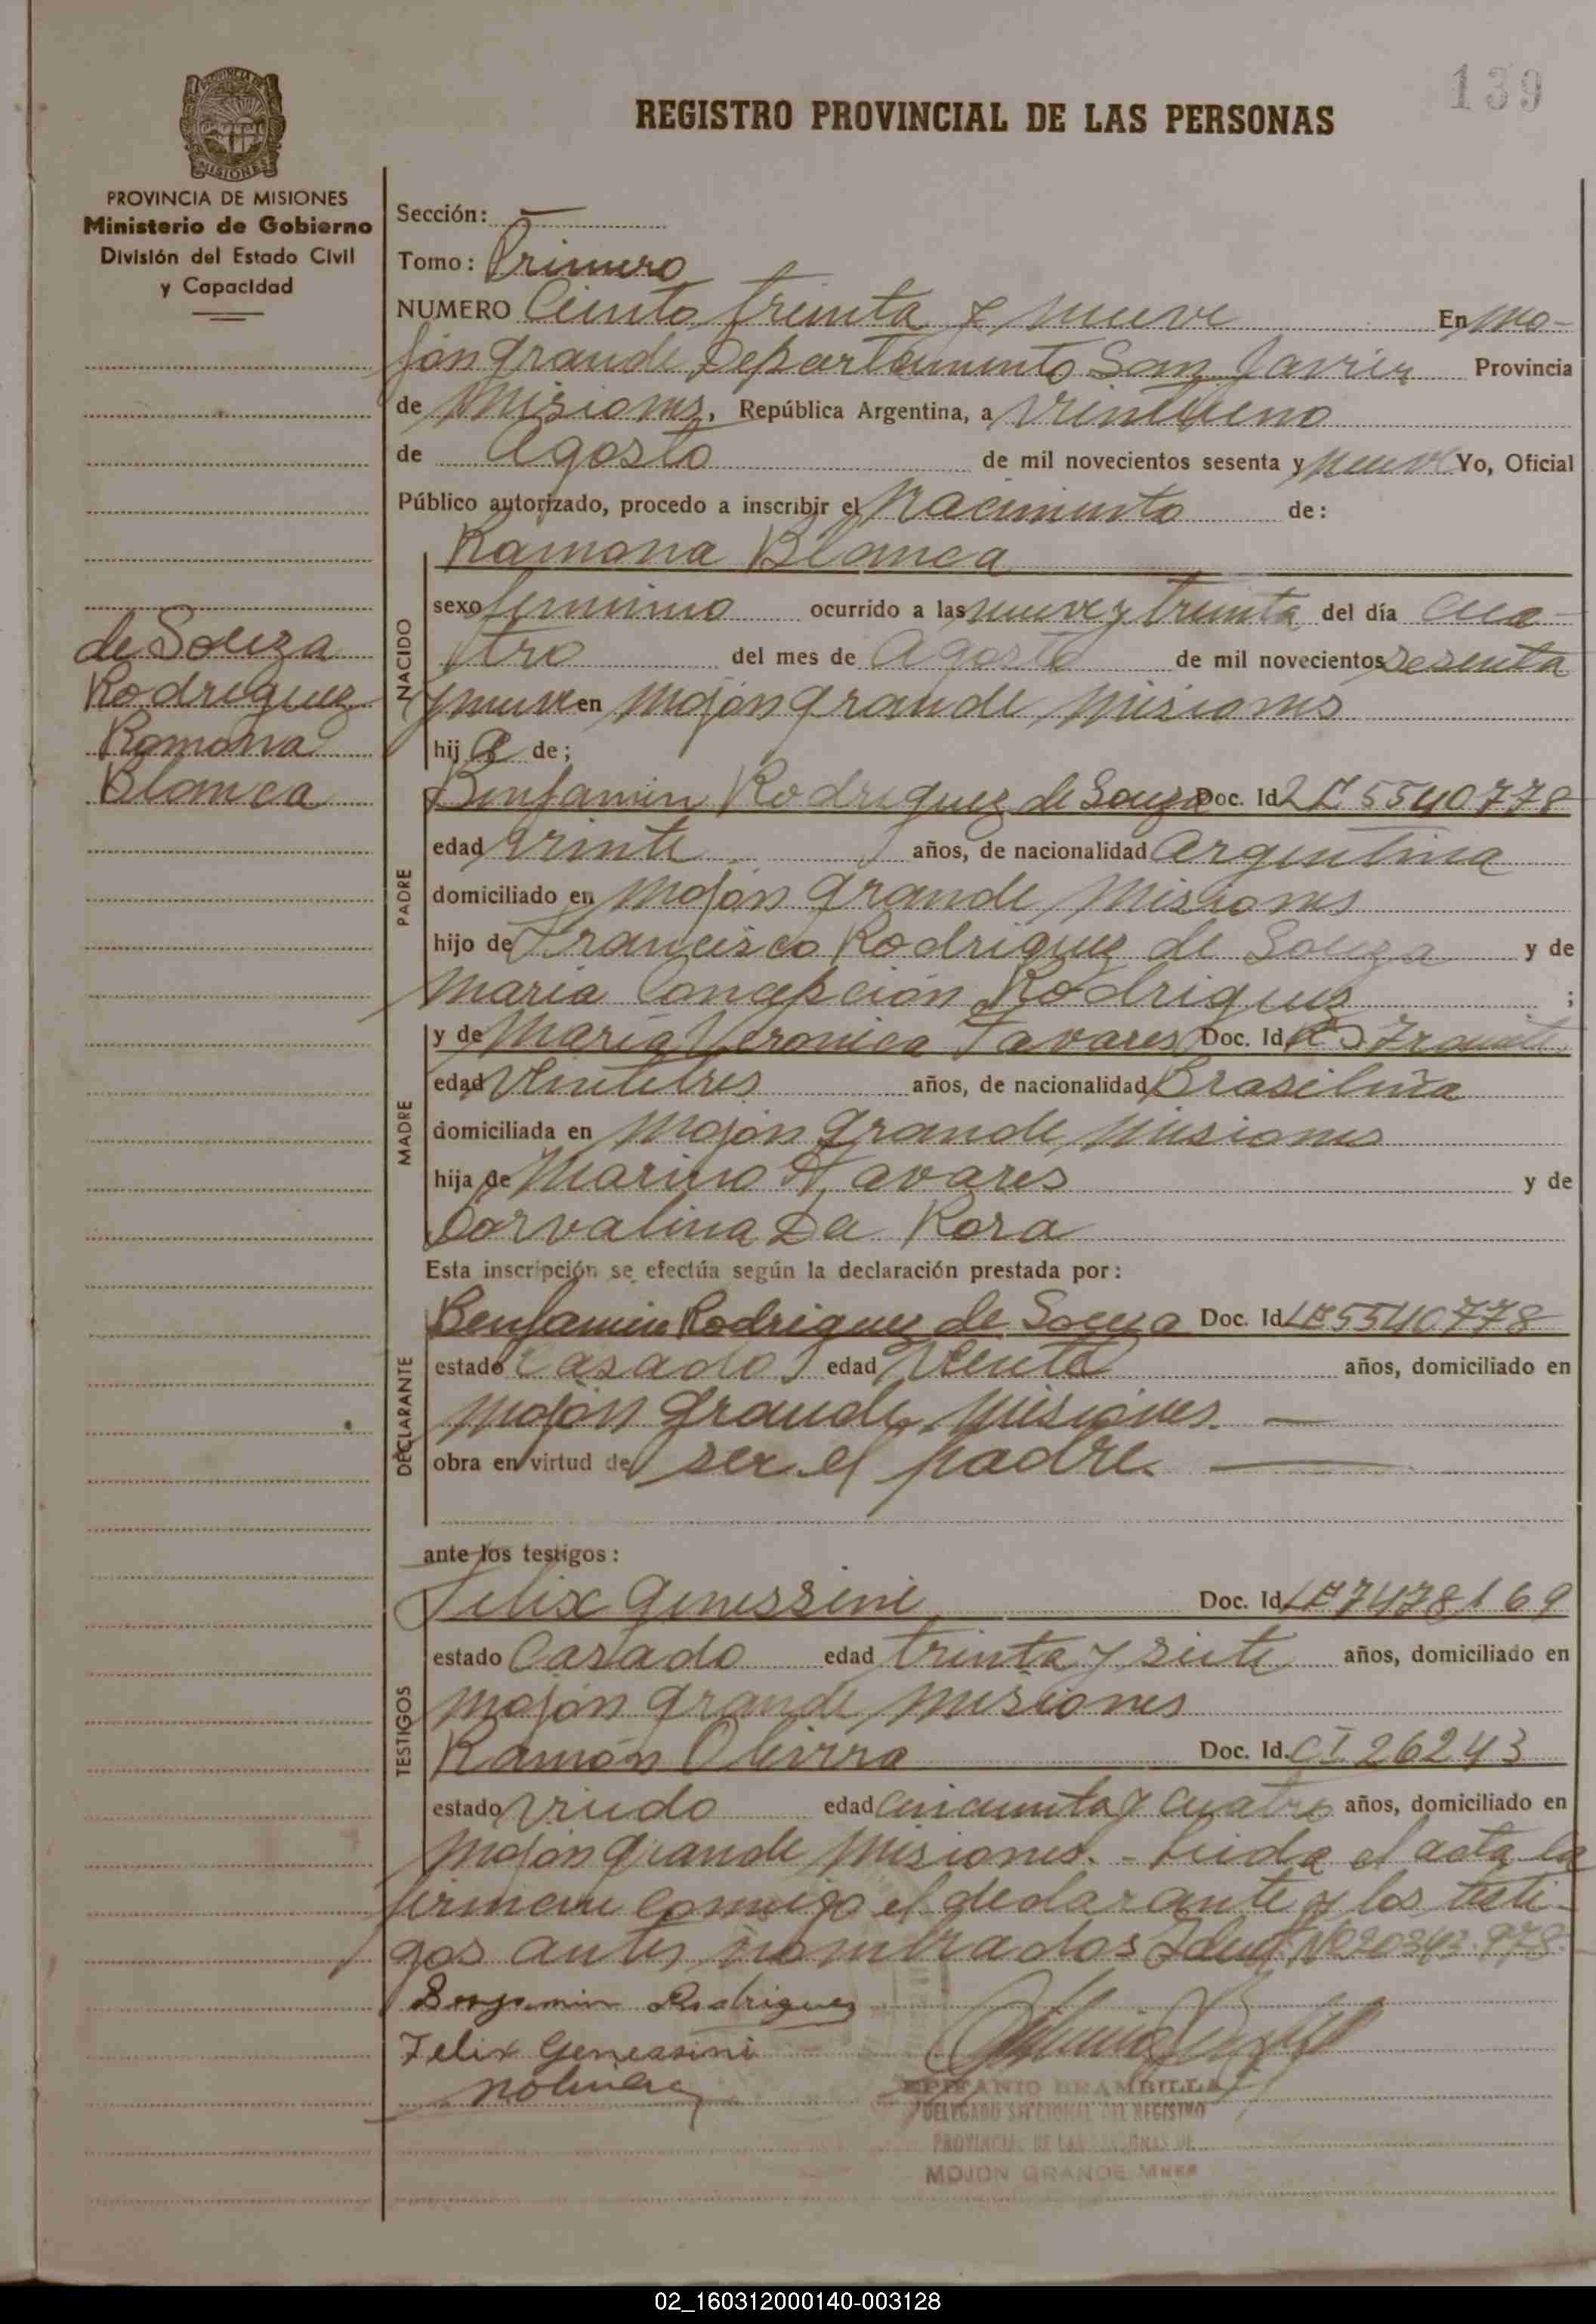 139
REGISTRO PROVINCIAL DE LAS PERSONAS
PROVINCIA DE MISIONES
Ministerio de Gobierno
División del Estado Civil
y Capacidad
de Souza
Rodriguez
Ramona
Blanca
Sección: —
Tomo: Primero
NUMERO Ciento treinta y nueve En Mo-
jón grande Departamento San Javier Provincia
de Misiones, República Argentina, a veintiuno
de Agosto de mil novecientos sesenta y nueve Yo, Oficial
Público autorizado, procedo a inscribir el Nacimiento de:
Ramona Blanca
NACIDO
sexo femenino ocurrido a las nueve y treinta del día cua-
tro del mes de Agosto de mil novecientos sesenta
y nueve en Mojón grande Misiones
hija de;
PADRE
Benjamin Rodriguez de Souza Doc. Id LE 5540778
edad veinte años, de nacionalidad Argentina
domiciliado en Mojón grande Misiones
hijo de Francisco Rodriguez de Souza y de
Maria Concepción Rodriguez ;
MADRE
y de Maria Veronica Tavares Doc. Id
edad veintitres años, de nacionalidad Brasileña
domiciliada en Mojón grande Misiones
hija de Marino Tavares y de
Corvalina Da Rosa
Esta inscripción se efectúa según la declaración prestada por:
DECLARANTE
Benjamin Rodriguez de Souza Doc. Id LE 5540778
estado Casado edad veinte años, domiciliado en
Mojón grande, Misiones. —
obra en virtud de ser el padre. —
ante los testigos:
TESTIGOS
Felix Genessini Doc. Id. LE 7478169
estado Casado edad treinta y siete años, domiciliado en
Mojón grande Misiones
Ramón Olivera Doc. Id. CI 26243
estado viudo edad cincuenta y cuatro años, domiciliado en
Mojón grande Misiones. - Leida el acta la
firman conmigo el declarante y los testi-
gos antes nombrados
Benjamin Rodriguez
Felix Genessini
EPIFANIO BRAMBILLA
DELEGADO SECCIONAL DEL REGISTRO
PROVINCIAL DE LAS PERSONAS DE
MOJON GRANDE Mnes
02_160312000140-003128